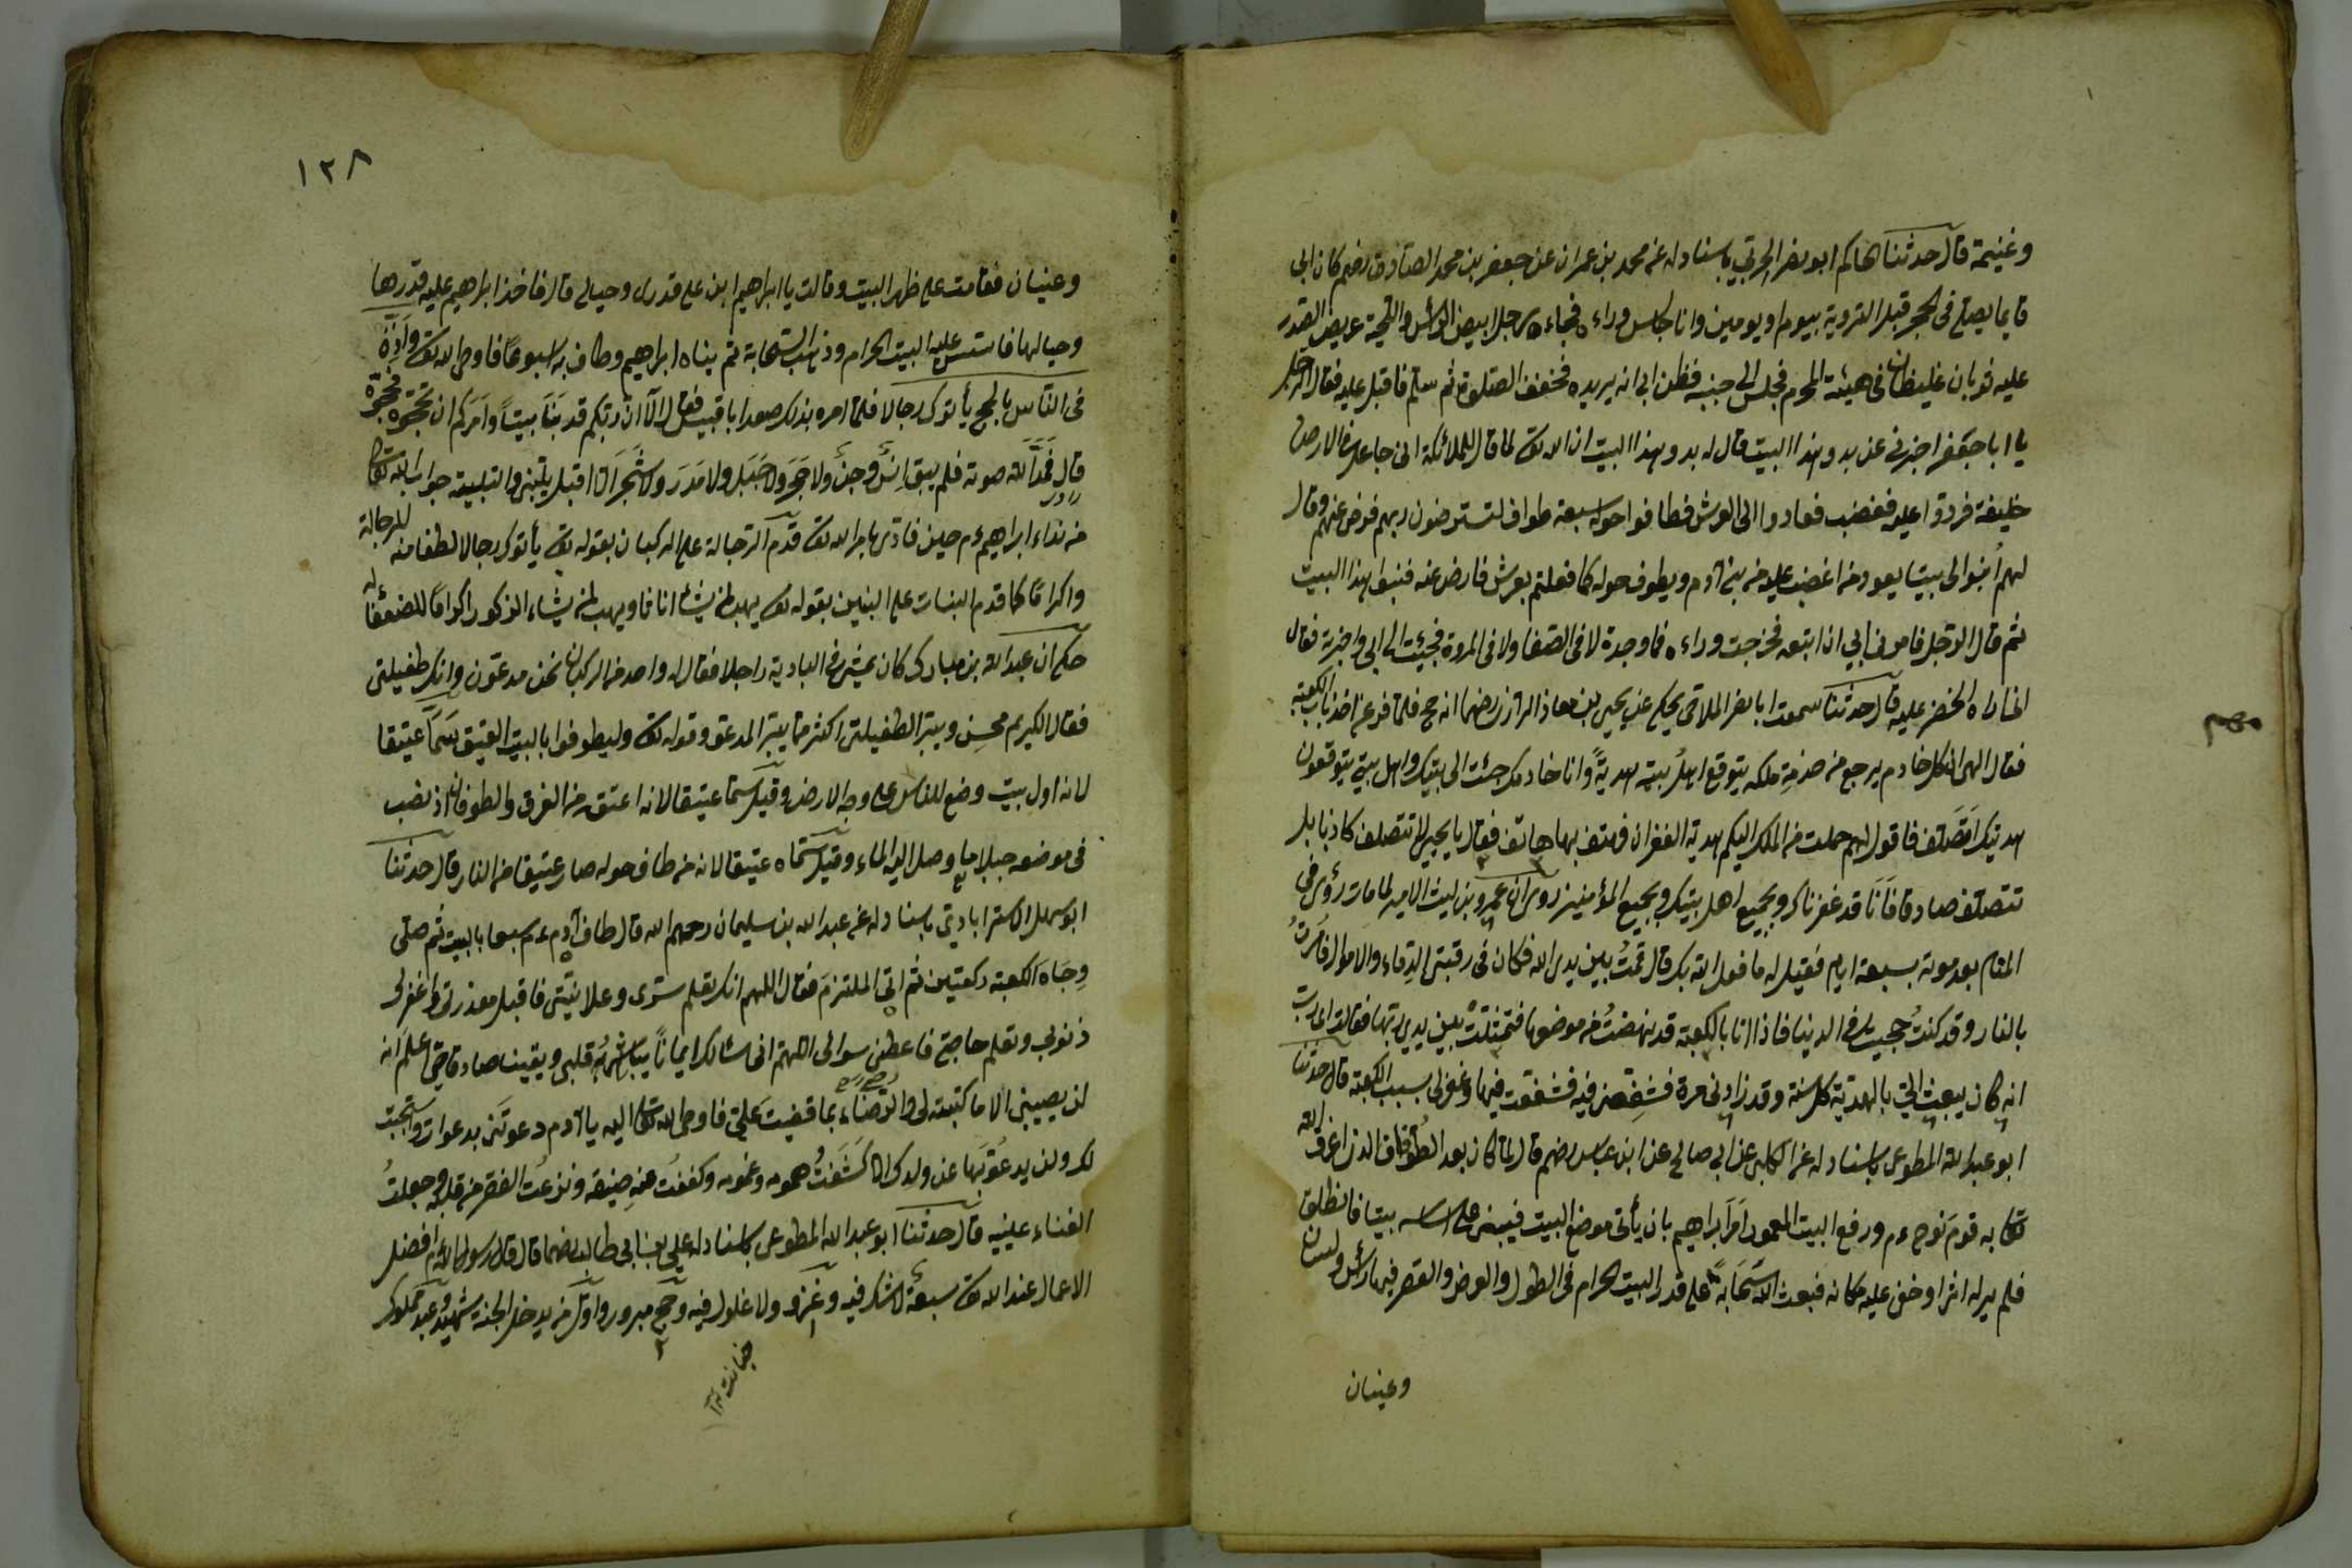 وغنيمة قال حدثنا الحاكم ابو نصر الحربي باسناد له عن محمد بن عمران عن جعفر بن محمد الصادق رضهم كان ابي
قايما يصلي في الحجر قبل التروية بيوم او يومين وانا جالس وراءه فجاءه رجل ابيض الرأس واللحية عريض الصدر
عليه ثوبان غليظان في هيئة المحرم فجلس الى جنبه فظن ابي انه يريده فخفف الصلوة ثم سلم فاقبل عليه فقال الرجل
يا ابا جعفر اخبرني عن بدو هذا البيت قال له بدو هذا البيت ان الله تعا لما قال للملائكة اني جاعل في الارض
خليفة فردوا عليه فغضب فعادوا الى العرش فطافوا حوله سبعة طواف لتسترضون ربهم فرضي عنهم وقال
لهم ابنوا لي بيتا يعوذ من اغضب عليه من بني آدم ويطوف حوله كما فعلتم بعرشي فارضى عنه فبنوا هذا البيت
ثم قال الرجل فامرني ابي ان اتبعه فخرجت وراءه فما وجدته لا في الصفا ولا في المروة فجئت الى ابي واخبرته فقال
الخضر عليه قال حدثنا سمعت ابا نصر يحكي عن يحيى بن معاذ الرازي رضهما انه حج فلما فرغ اخذ باب الكعبة
فقال الهي ان لكل خادم يرجع من خدمة ملكه يتوقع اهل بيته هدية وانا خادمك جئت الى بيتك واهل بيتي يتوقعون
هديتك فاقول لهم حملت من الملك اليكم هدية الغفران فهتف بها هاتف فقال يا يحيى لا تتصلف كاذبا بل
تتصلف صادقا فانا قد غفرناك وبجميع اهل بيتك وبجميع المؤمنين روي ان عمرو بن ليث الامير لما مات رؤي في
المنام بعد موته بسبعة ايام فقيل له ما فعل الله بك قال قمت بين يدي الله فكان في رقبتي الدماء والاموال فامرت
بالنار وقد كنت في الدنيا فاذا انا بالكعبة قد نهضت من موضعها فتمثلت بين يدي ربها فقالت اي رب
انه كان يبعث الي بالهدية كل سنة وقد زارني مرة فشفعني فيه فشفعت فيها وغفر لي بسبب الكعبة قال حدثنا
ابو عبد الله المطوعي باسناد له عن الكلبي عن ابي صالح عن ابن عباس رضهم قال لما كان بعد الطوفان الذي اغرق الله
تعا به قوم نوح عم ورفع البيت المعمور امر ابراهيم بان يأتي موضع البيت فيبني على اساسه بيتا فانطلق
فلم ير له اثرا وخفي عليه مكانه فبعث الله سحابة على قدر البيت الحرام في الطول والعرض والقصر فيها رأس ولسان
وعينان
١٢٨
وعينان فقامت على ظهر البيت وقالت يا ابراهيم ابن على قدري وحيالي قال فاخذ ابراهيم عليه قدرها
وحيالها فاسس عليه البيت الحرام وذهب السحابة ثم بناه ابراهيم وطاف به اسبوعا فاوحى الله تعا واذن
في الناس بالحج يأتوك رجالا فلما امره بذلك صعد ابا قبيس فقال الا ان ربكم قد بنا بيتا وامركم ان تحجوه فحجوه
قال فمد الله صوته فلم يبق انس وجن ولا حجر ولا جبل ولا مدر ولا شجر الا اقبل يلبي والتلبية جواب الله تعا
من نداء ابراهيم عم حين نادى بامر الله تعا قدم الرجالة على الركبان بقوله تعا يأتوك رجالا لطفا منه للرجالة
واكراما كما قدم البنات على البنين بقوله تعا يهب لمن يشاء اناثا ويهب لمن يشاء الذكور اكراما للضعفا
حكي ان عبد الله بن مبارك كان يمشي في البادية راجلا فقال له واحد من الركبان نحن مدعون وانك طفيلي
فقال الكريم محسن ويبر الطفيلي اكثر مما يبر المدعو وقوله تعا وليطوفوا بالبيت العتيق سمي عتيقا
لانه اول بيت وضع للناس على وجه الارض وقيل سما عتيقا لانه اعتق من الغرق والطوفان اذ نصب
في موضعه جبل ما وصل اليه الماء وقيل سماه عتيقا لانه من طاف حوله صار عتيقا من النار قال حدثنا
ابو سهل الاسترابادي باسناد له عن عبد الله بن سليمان رحمهم الله قال طاف آدم عم سبعا بالبيت ثم صلى
وجاه الكعبة ركعتين ثم اتى الملتزم فقال اللهم انك تعلم سري وعلانيتي فاقبل معذرتي واغفر لي
ذنوبي وتعلم حاجتي فاعطني سوالي اللهم اني اسئلك ايمانا يباشر به قلبي ويقينا صادقا حتى اعلم انه
لن يصيبني الا ما كتبته لي والرضاء بما قضيت علي فاوحى الله تعا اليه يا آدم دعوتني بدعوات واستجبت
لك ولن يدعو بها عن ولدك الا كشفت همومه وغمومه وكففت عنه ضيقه ونزعت الفقر من قلبه وجعلت
الغناء عينيه قال حدثنا ابو عبد الله المطوعي باسناد له علي بن ابي طالب رضهما قال قال رسول الله عم افضل
الاعمال عند الله تعا سبعة لا شك فيه وغزو ولا غلول فيه وحج مبرور واول من يدخل الجنة شهيد وعبد مملوك